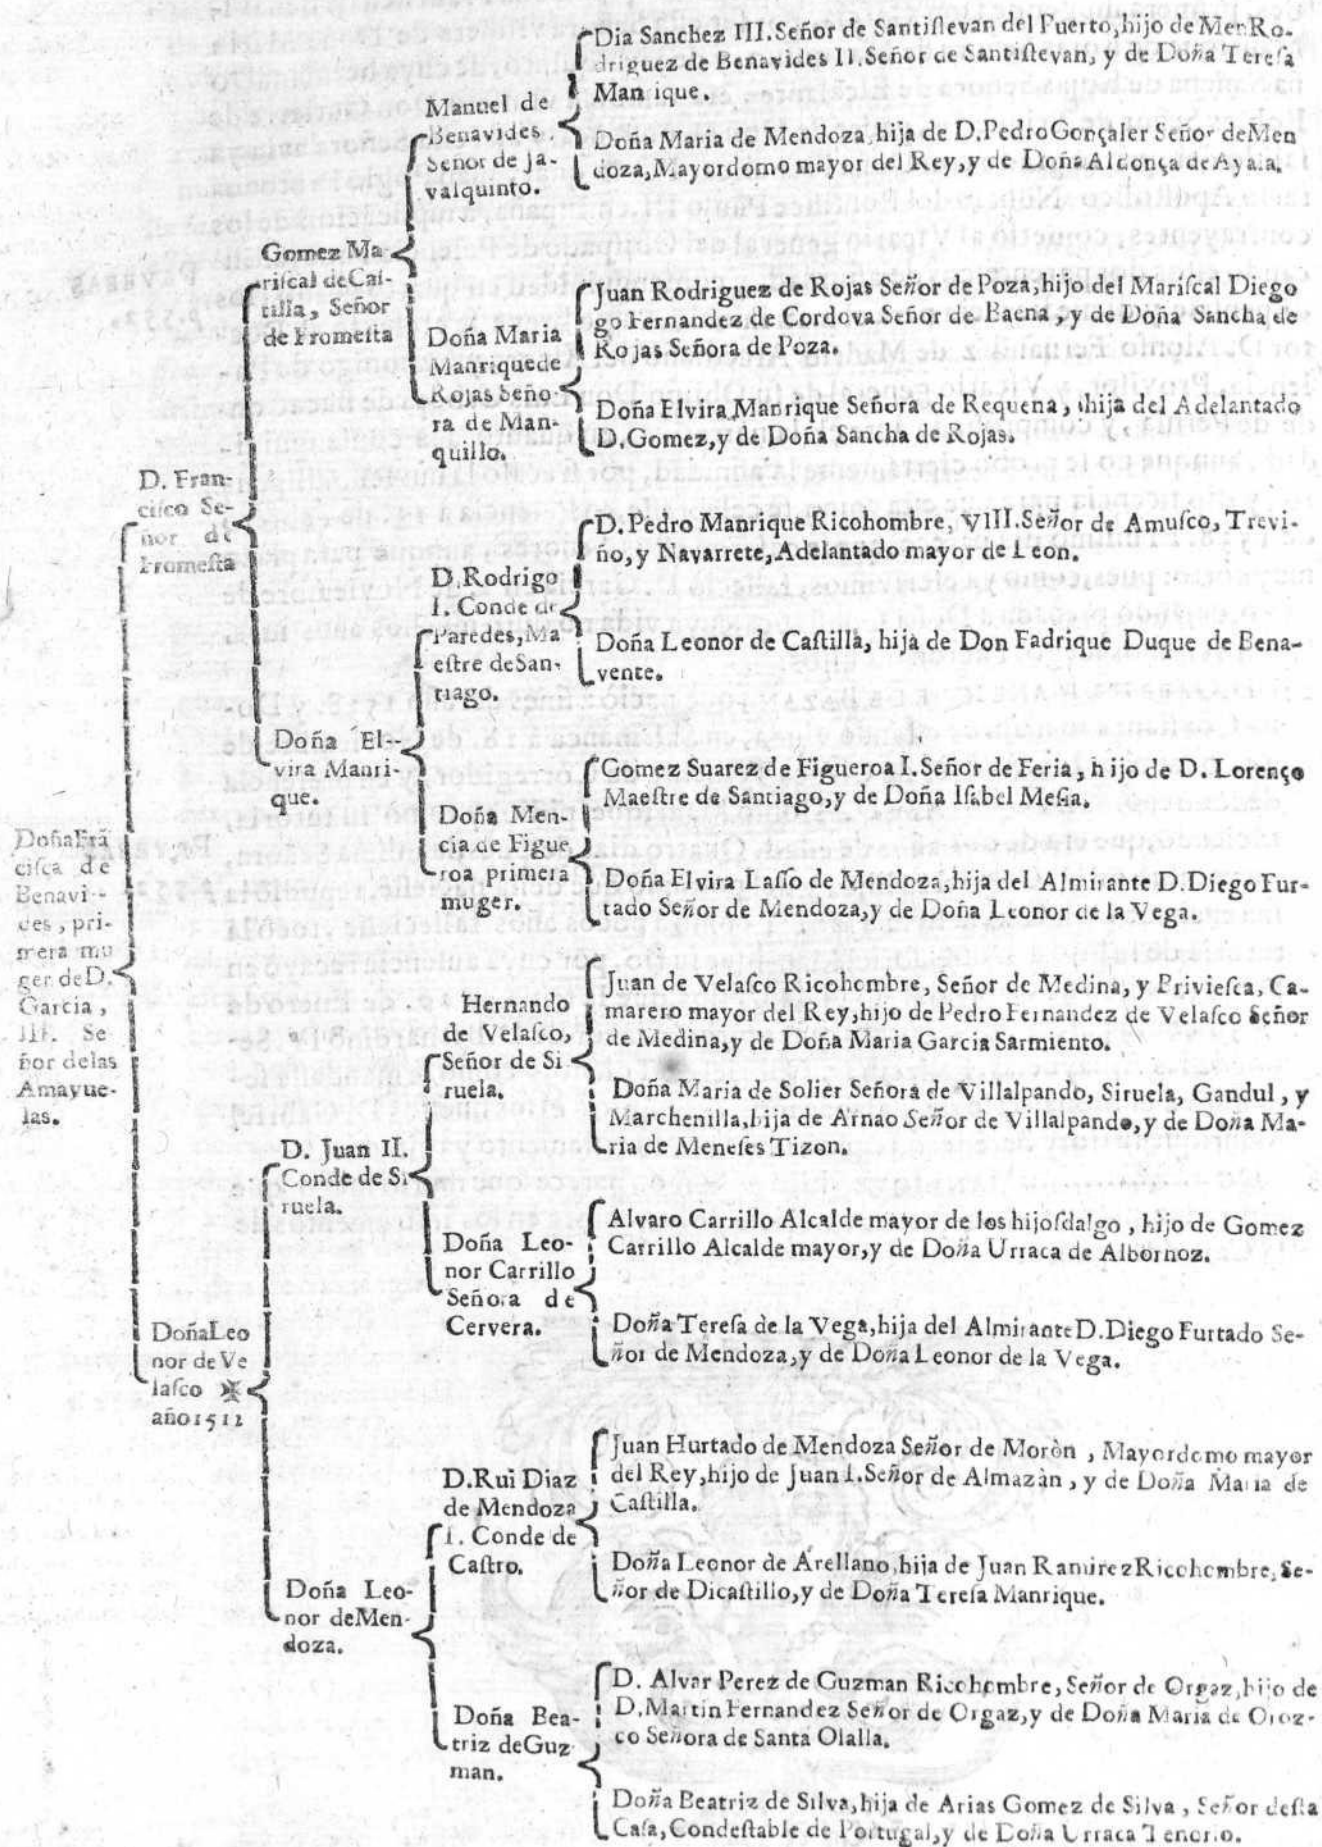 Doña Frã
cisca de
Benavi-
des, pri-
mera mu
ger de D.
Garcia,
III. Se
ñor de las
Amayue-
las.
D. Fran-
cisco Se-
ñor de
Fromesta
Doña Leo
nor de Ve
lasco ✠
año 1512
Gomez Ma-
riscal de Cas-
tilla, Señor
de Fromesta
Doña El-
vira Manri-
que.
D. Juan II.
Conde de Si
ruela.
Doña Leo-
nor de Men-
doza.
Manuel de
Benavides
Señor de Ja-
valquinto.
Doña Maria
Manrique de
Rojas Seño-
ra de Man-
quillo.
D. Rodrigo
I. Conde de
Paredes, Ma
estre de San-
tiago.
Doña Men-
cia de Figue
roa primera
muger.
Hernando
de Velasco,
Señor de Si
ruela.
Doña Leo-
nor Carrillo
Señora de
Cervera.
D. Rui Diaz
de Mendoza
I. Conde de
Castro.
Doña Bea-
triz de Guz
man.
Dia Sanchez III. Señor de Santistevan del Puerto, hijo de Men Ro-
driguez de Benavides II. Señor de Santistevan, y de Doña Teresa
Man ique.
Doña Maria de Mendoza, hija de D. Pedro Gonçaler Señor de Men
doza, Mayordomo mayor del Rey, y de Doña Aldonça de Ayala.
Juan Rodriguez de Rojas Señor de Poza, hijo del Mariscal Diego
go Fernandez de Cordova Señor de Baena, y de Doña Sancha de
Rojas Señora de Poza.
Doña Elvira Manrique Señora de Requena, hija del Adelantado
D. Gomez, y de Doña Sancha de Rojas.
D. Pedro Manrique Ricohombre, VIII. Señor de Amusco, Trevi-
ño, y Navarrete, Adelantado mayor de Leon.
Doña Leonor de Castilla, hija de Don Fadrique Duque de Bena-
vente.
Gomez Suarez de Figueroa I. Señor de Feria, hijo de D. Lorenço
Maestre de Santiago, y de Doña Isabel Mesia.
Doña Elvira Lasso de Mendoza, hija del Almirante D. Diego Fur-
tado Señor de Mendoza, y de Doña Leonor de la Vega.
Juan de Velasco Ricohombre, Señor de Medina, y Briviesca, Ca-
marero mayor del Rey, hijo de Pedro Fernandez de Velasco Señor
de Medina, y de Doña Maria Garcia Sarmiento.
Doña Maria de Solier Señora de Villalpando, Siruela, Gandul, y
Marchenilla, hija de Arnao Señor de Villalpando, y de Doña Ma-
ria de Meneses Tizon.
Alvaro Carrillo Alcalde mayor de los hijosdalgo, hijo de Gomez
Carrillo Alcalde mayor, y de Doña Urraca de Albornoz.
Doña Teresa de la Vega, hija del Almirante D. Diego Furtado Se-
ñor de Mendoza, y de Doña Leonor de la Vega.
Juan Hurtado de Mendoza Señor de Moròn, Mayordomo mayor
del Rey, hijo de Juan I. Señor de Almazàn, y de Doña Maria de
Castilla.
Doña Leonor de Arellano, hija de Juan Ramirez Ricohombre, Se-
ñor de Dicastillo, y de Doña Teresa Manrique.
D. Alvar Perez de Guzman Ricohombre, Señor de Orgaz, hijo de
D. Martin Fernandez Señor de Orgaz, y de Doña Maria de Oroz-
co Señora de Santa Olalla.
Doña Beatriz de Silva, hija de Arias Gomez de Silva, Señor desta
Casa, Condestable de Portugal, y de Doña Urraca Tenorio.